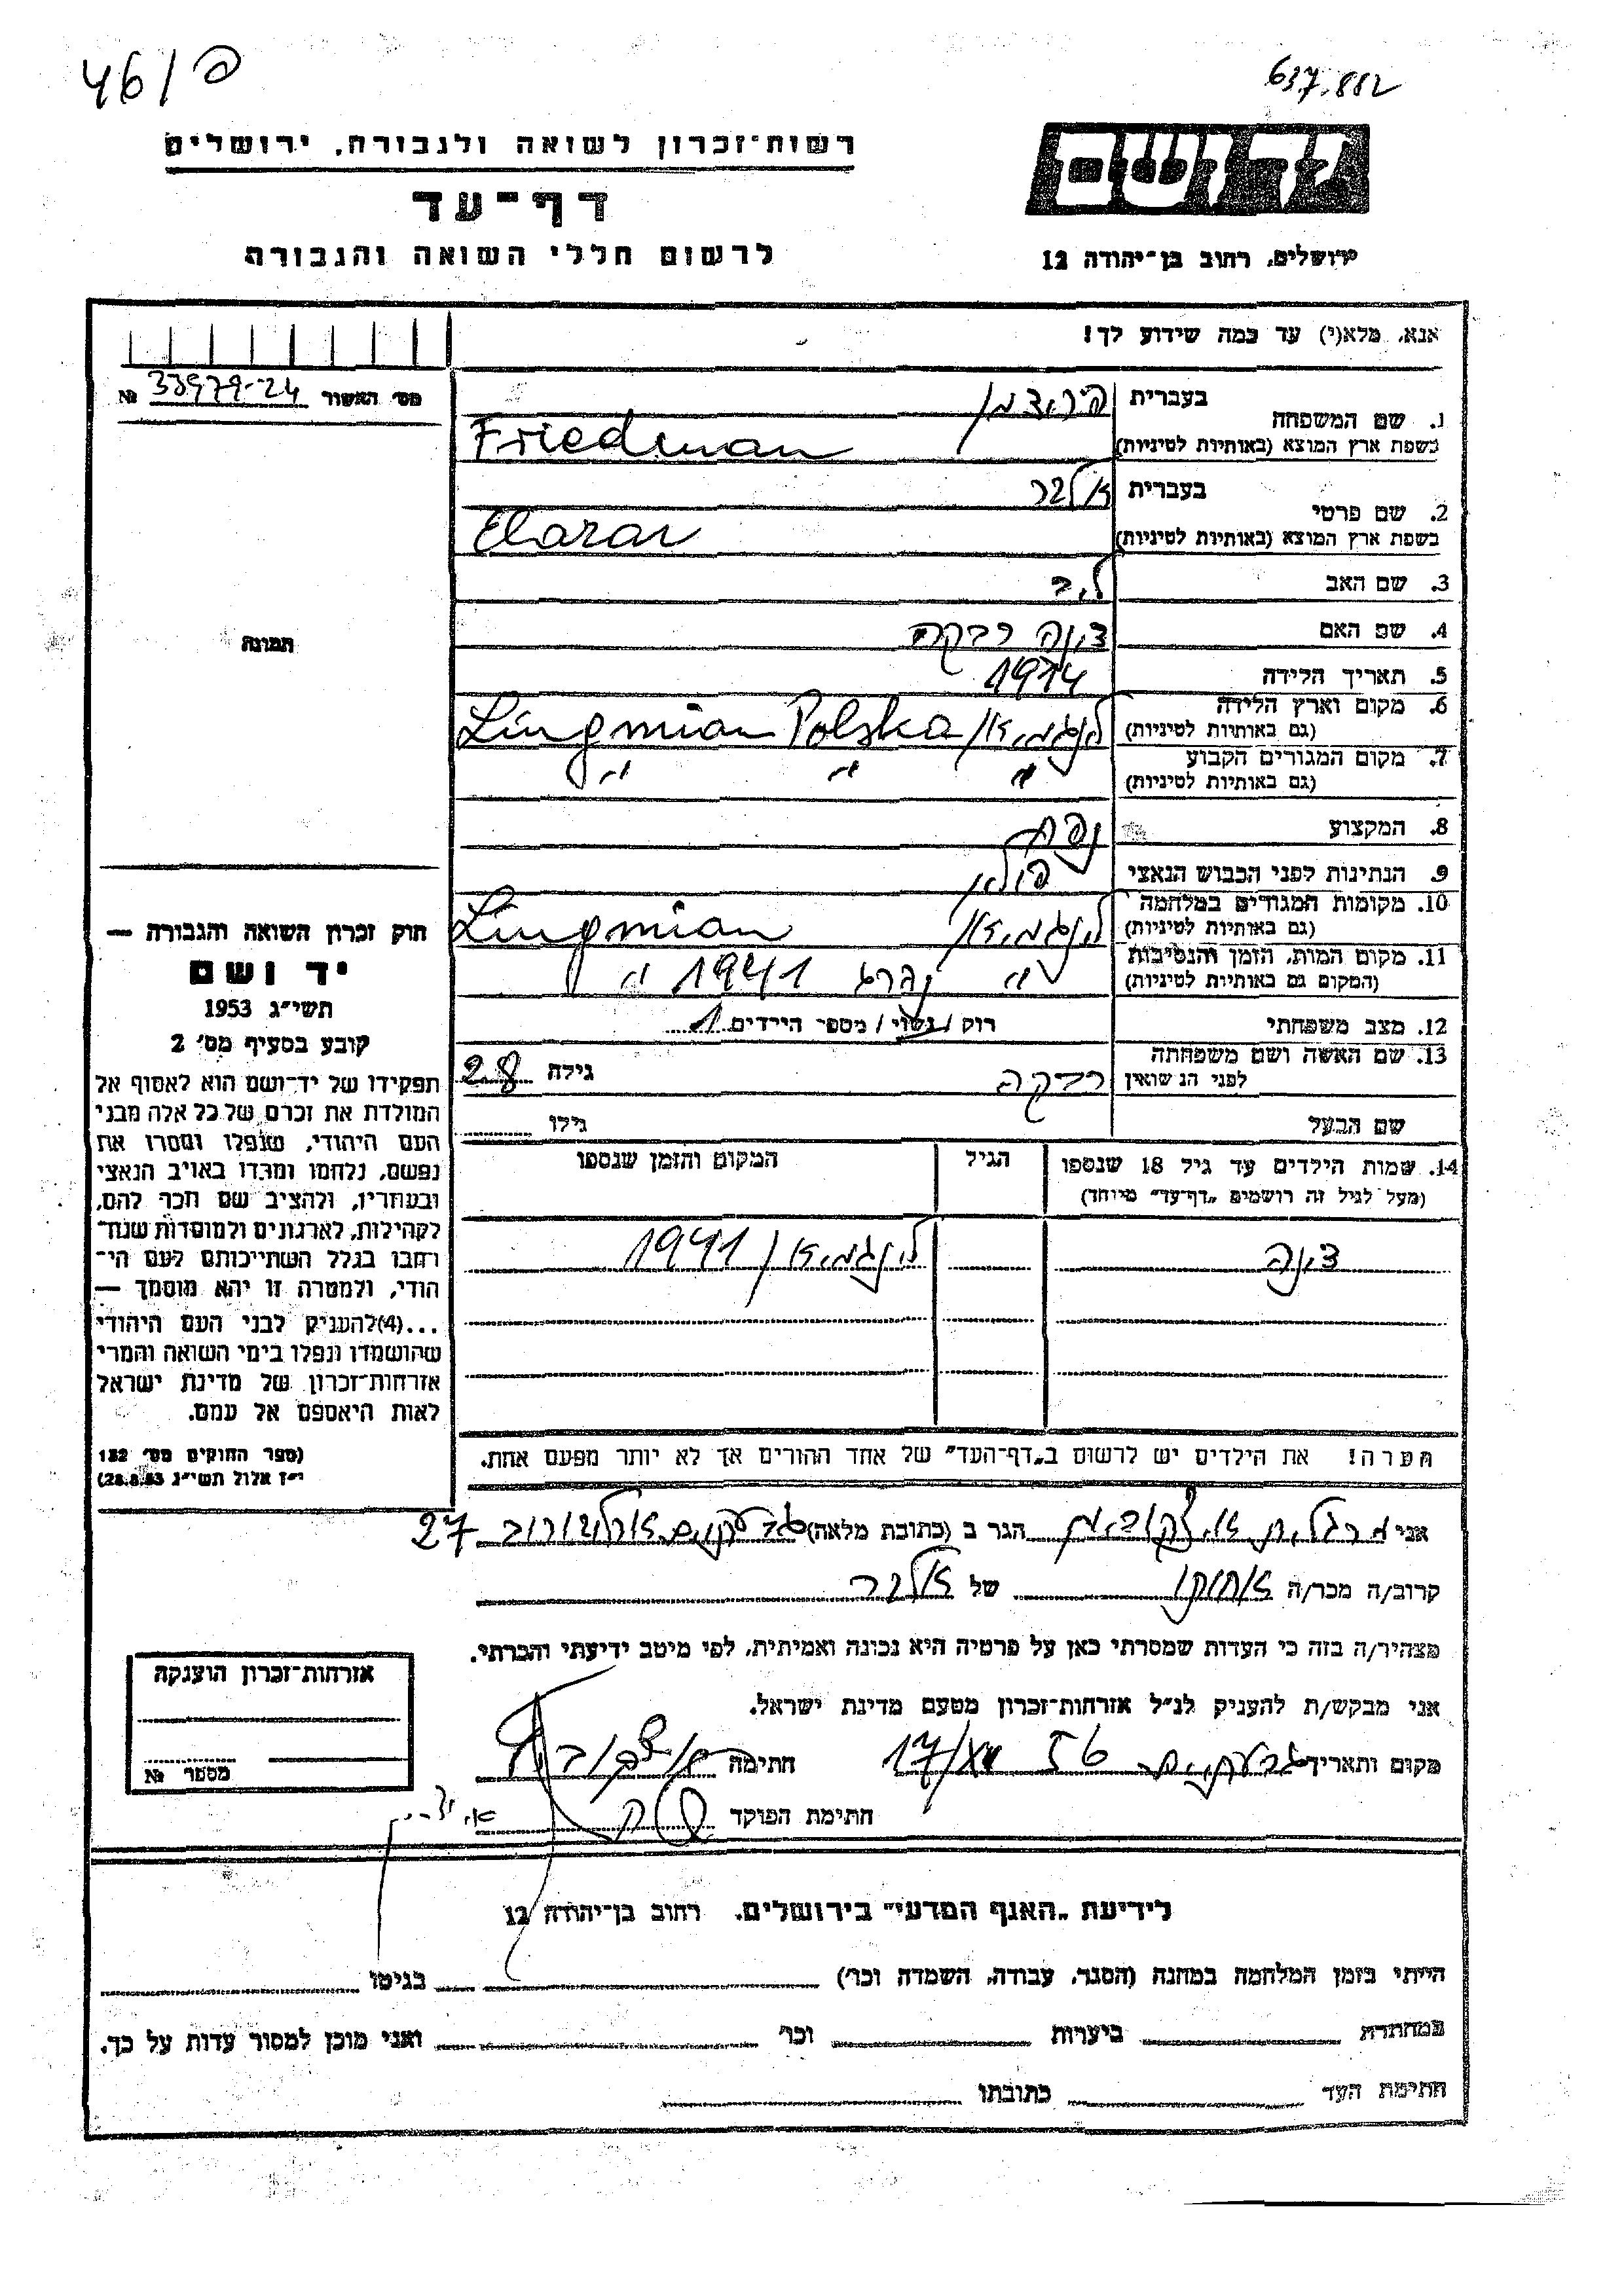 46/פ
637.882
רשות־זכרון לשואה ולגבורה, ירושלים
דף־עד
לרשום חללי השואה והגבורה
יד ושם
ירושלים, רחוב בן־יהודה 12
אנא, מלא(י) עד כמה שידוע לך!
מס׳ האשור № 33979-24
תמונה
1. שם המשפחה
בעברית פרידמן
בשפת ארץ המוצא (באותיות לטיניות) Friedman
2. שם פרטי
בעברית
בשפת ארץ המוצא (באותיות לטיניות) Elazar
3. שם האב ליב
4. שם האם צונה רבקה
5. תאריך הלידה 1914
6. מקום וארץ הלידה
(גם באותיות לטיניות) לינגמיאן Lingmian Polska
7. מקום המגורים הקבוע
(גם באותיות לטיניות) " " "
8. המקצוע נפח
9. הנתינות לפני הכבוש הנאצי פולין
10. מקומות המגורים במלחמה
(גם באותיות לטיניות) לינגמיאן Lingmian
11. מקום המות, הזמן והנסיבות
(המקום גם באותיות לטיניות) " נהרג 1941 "
12. מצב משפחתי רוק / נשוי / מספר הילדים 1
13. שם האשה ושם משפחתה
לפני הנשואין רבקה גילה 28
שם הבעל גילו
14. שמות הילדים עד גיל 18 שנספו הגיל המקום והזמן שנספו
(מעל לגיל זה רושמים „דף־עד" מיוחד)
צונה לינגמיאן 1941
הערה! את הילדים יש לרשום ב„דף־העד" של אחד ההורים אך לא יותר מפעם אחת.
חוק זכרון השואה והגבורה —
יד ושם
תשי״ג 1953
קובע בסעיף מס׳ 2
תפקידו של יד־ושם הוא לאסוף אל
המולדת את זכרם של כל אלה מבני
העם היהודי, שנפלו ומסרו את
נפשם, נלחמו ומרדו באויב הנאצי
ובעוזריו, ולהציב שם וזכר להם,
לקהילות, לארגונים ולמוסדות שנח־
רבו בגלל השתייכותם לעם הי־
הודי, ולמטרה זו יהא מוסמך —
...(4) להעניק לבני העם היהודי
שהושמדו ונפלו בימי השואה והמרי
אזרחות־זכרון של מדינת ישראל
לאות היאספם אל עמם.
(ספר החוקים מס׳ 132
י״ז אלול תשי״ג 28.8.53)
אני מרגלית הגר ב (כתובת מלאה) גבעתיים ארלוזורוב 27
קרוב/ה מכר/ה של
מצהיר/ה בזה כי העדות שמסרתי כאן על פרטיה היא נכונה ואמיתית, לפי מיטב ידיעתי והכרתי.
אני מבקש/ת להעניק לנ״ל אזרחות־זכרון מטעם מדינת ישראל.
מקום ותאריך גבעתיים 17/XII 56 חתימה
חתימת הפוקד
אזרחות־זכרון הוענקה
מספר №
לידיעת „האגף המדעי" בירושלים. רחוב בן־יהודה 12
הייתי בזמן המלחמה במחנה (הסגר, עבודה, השמדה וכו׳) בגיטו
במחתרת ביערות וכו׳ ואני מוכן למסור עדות על כך.
חתימת העד כתובתו